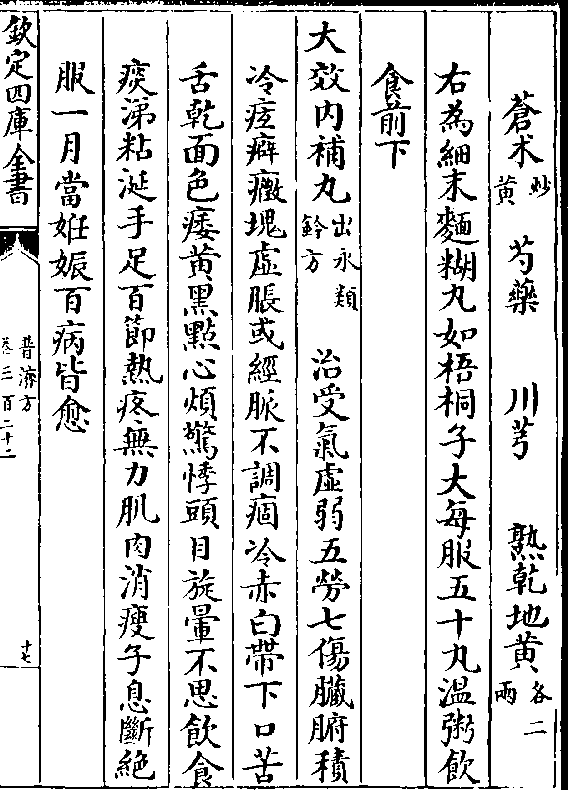 蒼术炒黄 芍藥 川芎 熟乾地黄各二兩
右為細末麵糊丸如梧桐子大每服五十丸温粥飲
食前下
大效内補丸出永類鈐方 治受氣虛弱五勞七傷臟腑積
冷痃癖癥塊虛脹或經脈不調痼冷赤白帶下口苦
舌乾面色痿黄黑點心煩驚悸頭目旋暈不思飲食
痰涕粘涎手足百節熱疼無力肌肉消瘦子息斷絶
服一月當妊娠百病皆愈
欽定四庫全書
普濟方
卷三百二十二
十七